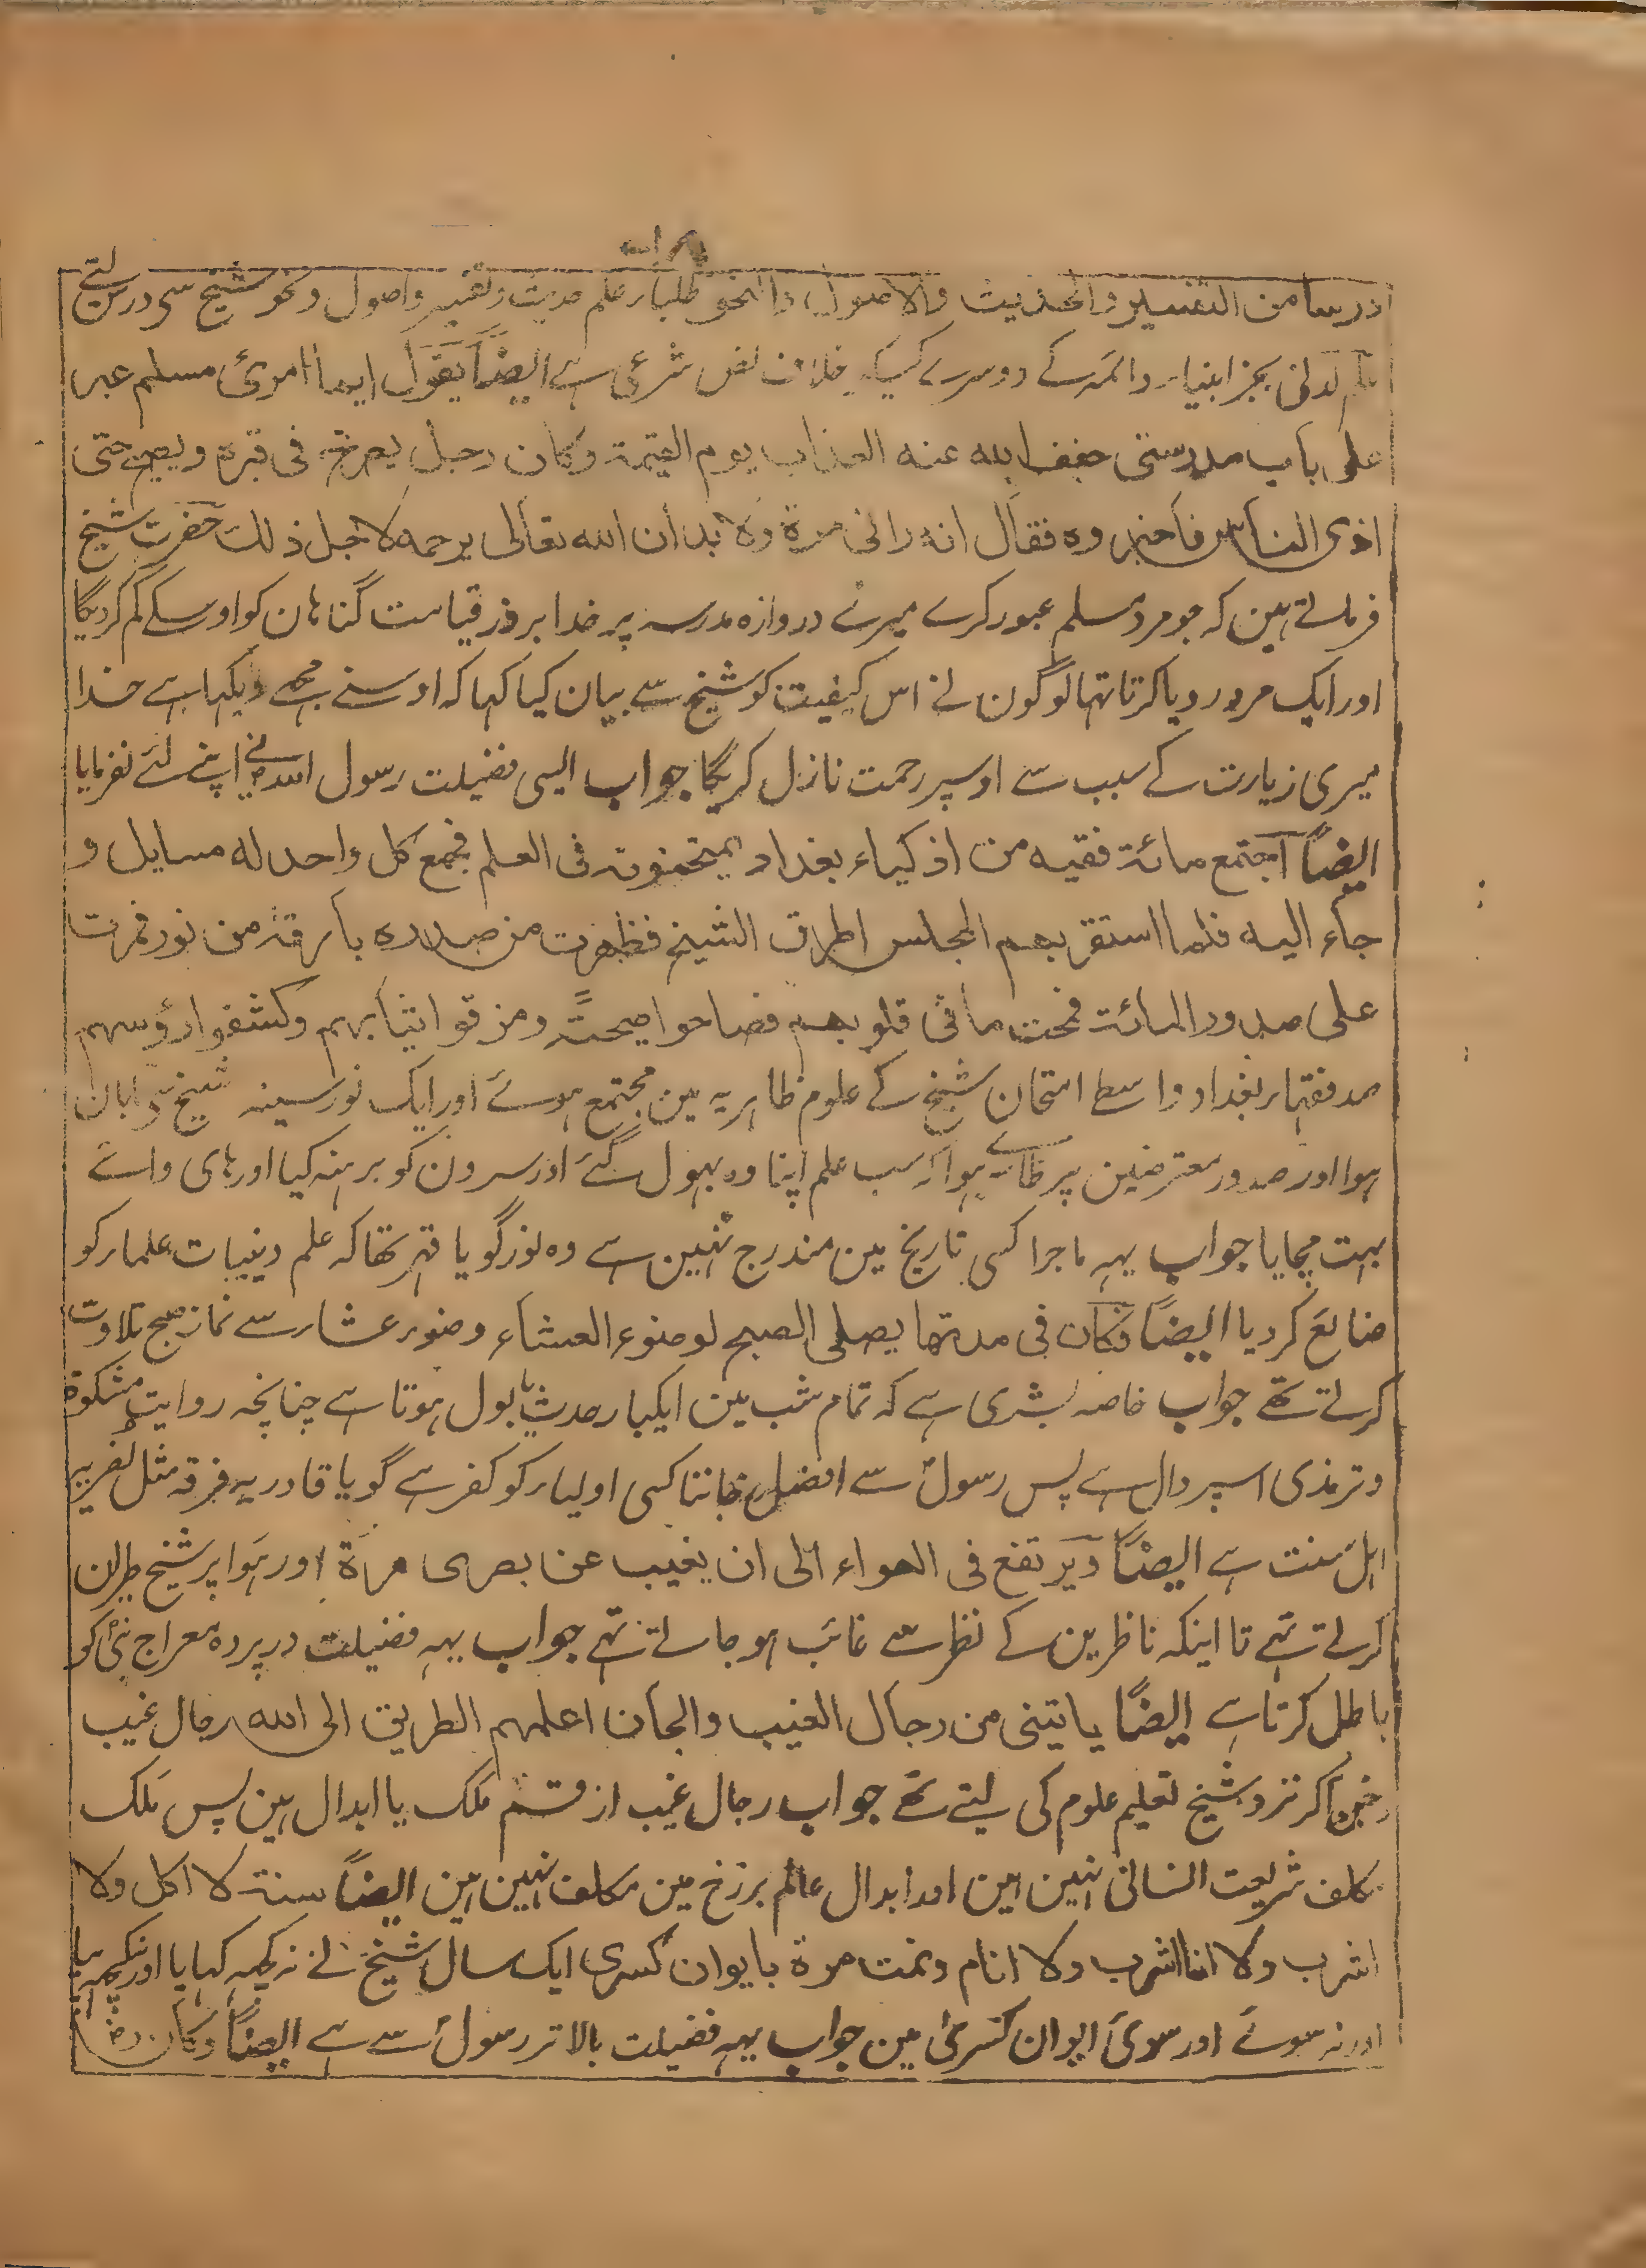 درسا من التفسير والحديث والاصول والنحو طلبار علم حدیث وتفسیر واصول ونحو شیخ سی درس لیتے
علم لدنی بجز انبیار وائمہ کے دوسرے کیلیے خلاف نص شرعی ہے ایضاً یقول ایما امرئ مسلم عبر
على باب مدرستی خفف الله عنه العذاب يوم القيمة وكان رجل يصرخ فى قبره ويصيح حتى
اذى الناس فاخبروه فقال انه رانى مرة ولا بد ان الله تعالى يرحمه لاجل ذلك حضرت شیخ
فرماتے ہین کہ جو مرد مسلم عبور کرے میرے دروازہ مدرسہ پر خدا بروز قیامت گناہان کو اوسکے کم کردیگا
اور ایک مردہ رویا کرتا تہا لوگون نے اس کیفیت کو شیخ سے بیان کیا کہا کہ اوسنے مجھے دیکہا ہے خدا
میری زیارت کے سبب سے اوسپر رحمت نازل کریگا جواب ایسی فضیلت رسول اللہ نے اپنے لئے نفرمایا
ایضاً اجتمع مائة فقيه من اذكياء بغداد يمتحنونه فى العلم فجمع كل واحد له مسايل و
جاء اليه فلما استقر بهم المجلس اطرق الشيخ فظهرت من صدره بارقة من نور فمرت
على صدور المائة فمحت ما فى قلوبهم فصاحوا صيحةً ومزقوا ثيابهم وكشفوا رؤسهم
صد فقہار بغداد واسطے امتحان شیخ کے علوم ظاہریہ مین مجتمع ہوئے اور ایک نور سینہ شیخ سے تابان
ہوا اور صدور معترضین پر ہوا کہ سب علم اپنا وہ بہول گئے اور سرون کو برہنہ کیا اور ہای وائے
بہت مچایا جواب یہہ ماجرا کسی تاریخ مین مندرج نہین ہے وہ نور گویا قہر تھا کہ علم دینیات علمار کو
ضایع کردیا ایضاً فكان فى مدتها يصلى الصبح لوضوء العشاء وضور عشار سے نماز صبح تلاوت
کرتے تھے جواب خاصہ بشری ہے کہ تمام شب مین ایکبار حدث یا بول ہوتا ہے چنانچہ روایت مشکوۃ
وترمذی اسپر دال ہے پس رسول سے افضل جاننا کسی اولیار کو کفر ہے گویا قادریہ فرقہ مثل نصریہ
اہل سنت ہے ایضاً ويرتفع فى الهواء الى ان يغيب عن بصرى مرة اور ہوا پر شیخ طیران
کرتے تہے تا اینکہ ناظرین کے نظر سے غائب ہو جاتے تہے جواب یہہ فضیلت درپردہ معراج نبی کو
باطل کرتا ہے ایضاً ياتينى من رجال الغيب والجان اعلمهم الطريق الى الله رجال غیب
وجن آکر نزد شیخ تعلیم علوم کی لیتے تھے جواب رجال غیب از قسم ملک یا ابدال ہین پس ملک
مکلف شریعت انسانی نہین ہین اور ابدال عالم برزخ مین مکلف نہین ہین ایضاً سنة لا اكل ولا
اشرب ولا انا اشرب ولا انام ونمت مرة بايوان كسرى ایک سال شیخ نے نہ کچہہ کہایا اور نہ کچہہ پیا
اور نہ سوئے اور سوئے ایوان کسرئ مین جواب یہہ فضیلت بالاتر رسول سے ہے ایضاً وكان رض